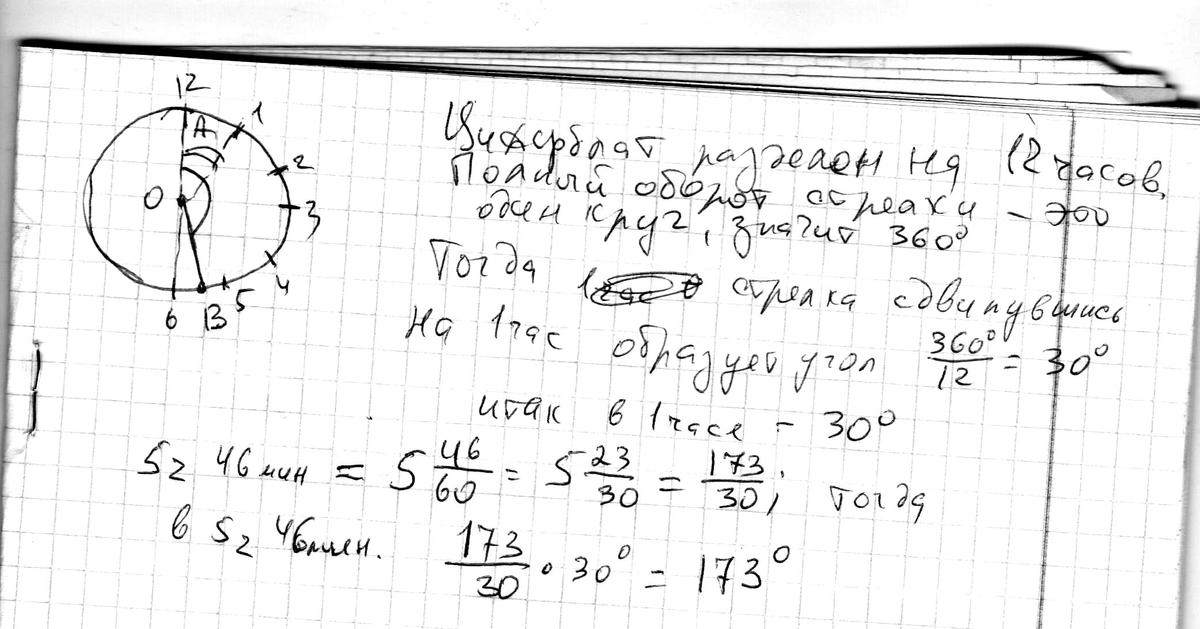 12
А 1
2
О
3
4
6 В 5
Циферблат разделен на 12 часов,
Полный оборот стрелки - это
один круг, значит 360°
Тогда 1час стрелка сдвинувшись
на 1час образует угол 360°/12 = 30°
итак в 1часе - 30°
5г 46мин = 5 46/60 = 5 23/30 = 173/30; тогда
в 5г 46мин. 173/30 • 30° = 173°